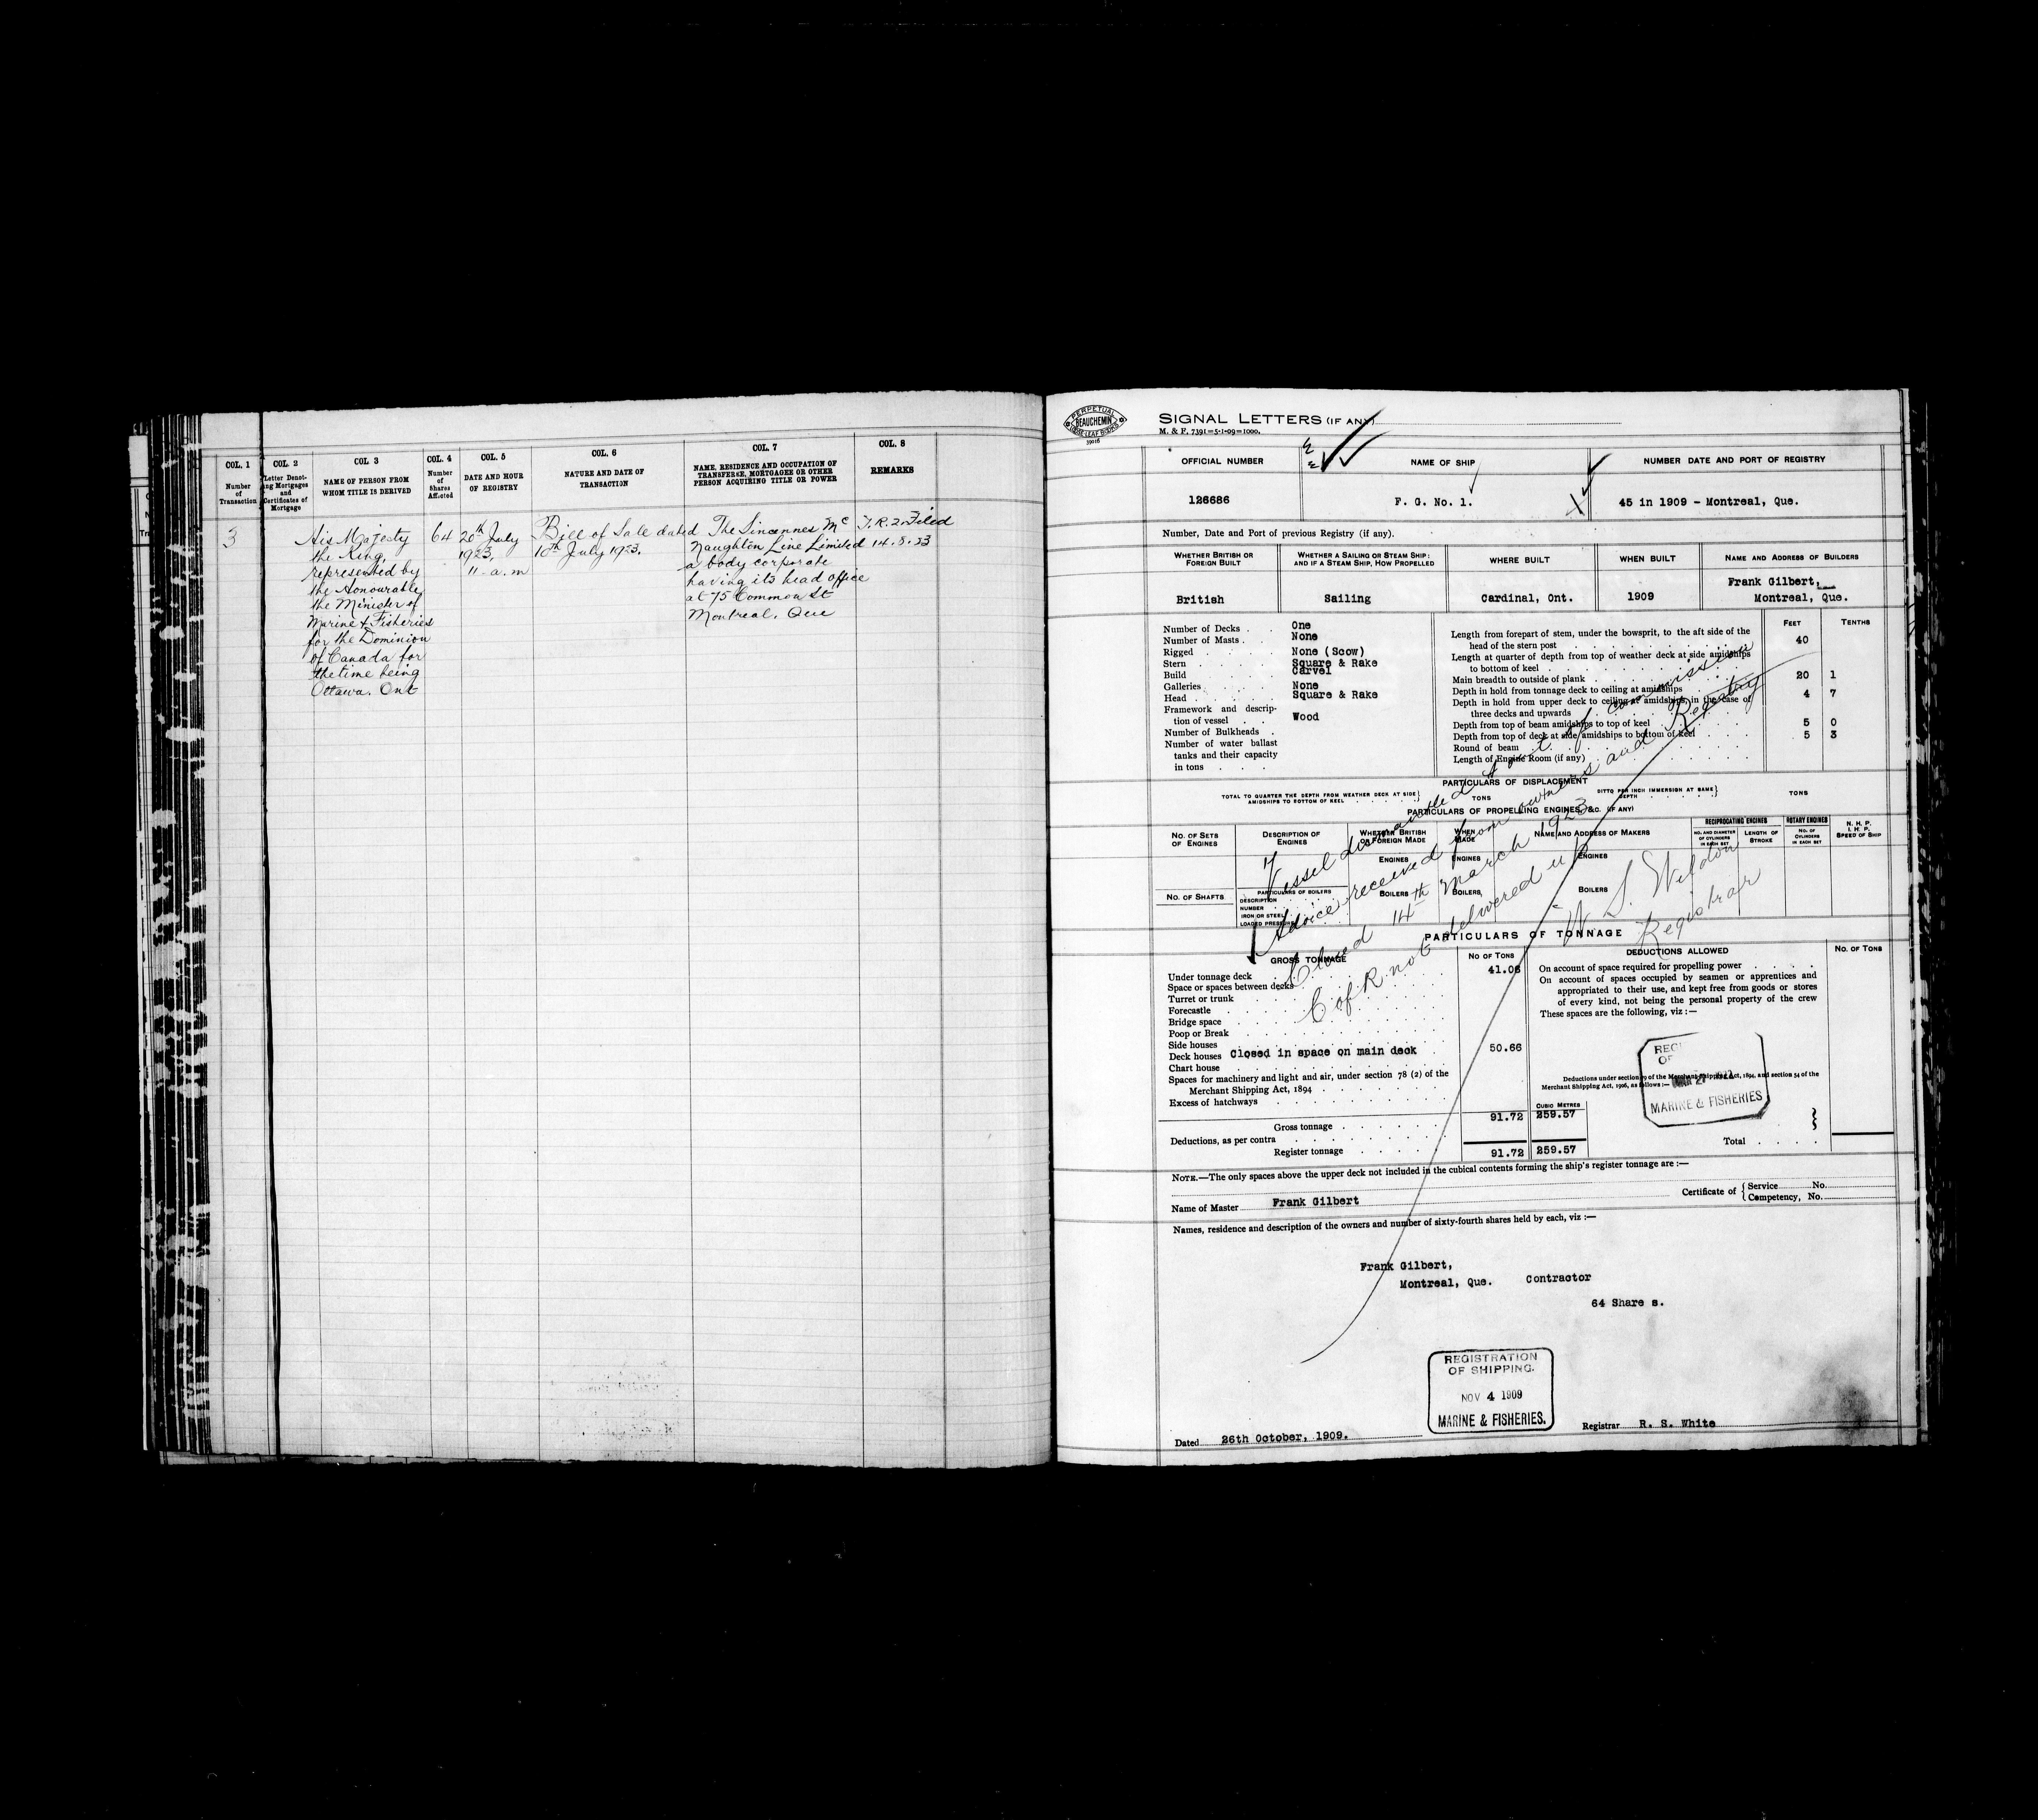 COL. 1
Number
of
Transaction
COL. 2
Letter Denot-
ing Mortgages
and
Certificates of
Mortgage
COL 3
NAME OF PERSON FROM
WHOM TITLE IS DERIVED
COL. 4
Number
of
Shares
Affected
COL. 5
DATE AND HOUR
OF REGISTRY
COL. 6
NATURE AND DATE OF
TRANSACTION
COL. 7
NAME, RESIDENCE AND OCCUPATION OF
TRANSFEREE, MORTGAGEE OR OTHER
PERSON ACQUIRING TITLE OR POWER
COL. 8
REMARKS
3
His Majesty
the King,
represented by
the Honourable
the Minister of
Marine & Fisheries
for the Dominion
of Canada for
the time being
Ottawa. Ont
64
20th July
1923
11 - a.m
Bill of Sale dated
10th July 1923.
The Sincennes Mc
Naughton Line Limited
a body corporate
having its head office
at 75 Common St
Montreal. Que
T.R.2. Filed
14.8.23
PERPETUAL
BEAUCHEMIN
LOOSE LEAF BINDER
39016
SIGNAL LETTERS (IF ANY)
M. & F. 7391=5-1-09=1000.
OFFICIAL NUMBER
126686
NAME OF SHIP
F. G. No. 1.
NUMBER DATE AND PORT OF REGISTRY
45 in 1909 - Montreal, Que.
Number, Date and Port of previous Registry (if any).
WHETHER BRITISH OR
FOREIGN BUILT
British
WHETHER A SAILING OR STEAM SHIP:
AND IF A STEAM SHIP, HOW PROPELLED
Sailing
WHERE BUILT
Cardinal, Ont.
WHEN BUILT
1909
NAME AND ADDRESS OF BUILDERS
Frank Gilbert,
Montreal, Que.
Number of Decks . . One
Number of Masts . . None
Rigged . . . None (Scow)
Stern . . . Square & Rake
Build . . . Carvel
Galleries . . . None
Head . . . Square & Rake
Framework and descrip-
tion of vessel . . Wood
Number of Bulkheads .
Number of water ballast
tanks and their capacity
in tons . . .
FEET TENTHS
Length from forepart of stem, under the bowsprit, to the aft side of the
head of the stern post 40
Length at quarter of depth from top of weather deck at side amidships
to bottom of keel
Main breadth to outside of plank 20 1
Depth in hold from tonnage deck to ceiling at amidships 4 7
Depth in hold from upper deck to ceiling at amidships, in the case of
three decks and upwards
Depth from top of beam amidships to top of keel 5 0
Depth from top of deck at side amidships to bottom of keel 5 3
Round of beam
Length of Engine Room (if any)
PARTICULARS OF DISPLACEMENT
TOTAL TO QUARTER THE DEPTH FROM WEATHER DECK AT SIDE
AMIDSHIPS TO BOTTOM OF KEEL
TONS
DITTO PER INCH IMMERSION AT SAME
DEPTH
TONS
PARTICULARS OF PROPELLING ENGINES, &C. (IF ANY)
NO. OF SETS
OF ENGINES
DESCRIPTION OF
ENGINES
WHETHER BRITISH
OR FOREIGN MADE
WHEN
MADE
NAME AND ADDRESS OF MAKERS
RECIPROCATING ENGINES
NO. AND DIAMETER
OF CYLINDERS
IN EACH SET
LENGTH OF
STROKE
ROTARY ENGINES
NO. OF
CYLINDERS
IN EACH SET
N. H. P.
I. H. P.
SPEED OF SHIP
ENGINES
ENGINES
ENGINES
NO. OF SHAFTS
PARTICULARS OF BOILERS
DESCRIPTION
NUMBER
IRON OR STEEL
LOADED PRESSURE
BOILERS
BOILERS
BOILERS
Vessel dismantled & out of commission
Advice received from owners and Registry
Closed 14th March 1923
C of R not delivered up
W. S. Weldon
Registrar
PARTICULARS OF TONNAGE
GROSS TONNAGE
NO OF TONS
Under tonnage deck 41.06
Space or spaces between decks
Turret or trunk
Forecastle
Bridge space
Poop or Break
Side houses
Deck houses Closed in space on main deck 50.66
Chart house
Spaces for machinery and light and air, under section 78 (2) of the
Merchant Shipping Act, 1894
Excess of hatchways
CUBIC METRES
Gross tonnage 91.72 259.57
Deductions, as per contra
Register tonnage 91.72 259.57
DEDUCTIONS ALLOWED
NO. OF TONS
On account of space required for propelling power
On account of spaces occupied by seamen or apprentices and
appropriated to their use, and kept free from goods or stores
of every kind, not being the personal property of the crew
These spaces are the following, viz :—
Deductions under section 79 of the Merchant Shipping Act, 1894, and section 54 of the
Merchant Shipping Act, 1906, as follows :—
MAR 27
MARINE & FISHERIES
Total
NOTE.—The only spaces above the upper deck not included in the cubical contents forming the ship's register tonnage are :—
Name of Master Frank Gilbert
Certificate of { Service No.
Competency, No.
Names, residence and description of the owners and number of sixty-fourth shares held by each, viz :—
Frank Gilbert,
Montreal, Que. Contractor
64 Share s.
REGISTRATION
OF SHIPPING.
NOV 4 1909
MARINE & FISHERIES.
Dated 26th October, 1909.
Registrar R. S. White